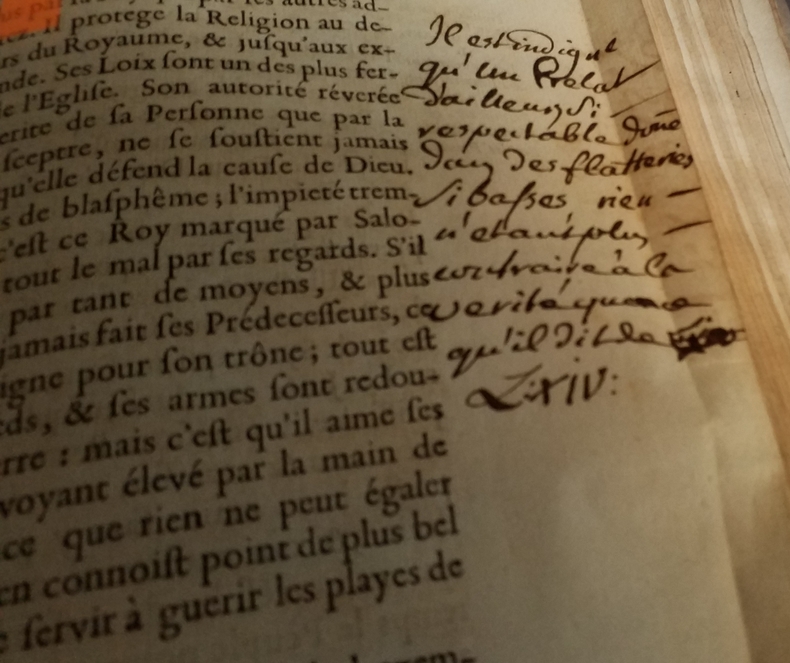 par les autres ad-
Il protege la Religion au de-
du Royaume, & juſqu'aux ex-
Ses Loix ſont un des plus fer-
l'Egliſe. Son autorité révérée
de ſa Perſonne que par la
ſceptre, ne ſe ſouſtient jamais
qu'elle défend la cauſe de Dieu.
de blaſphême ; l'impieté trem-
c'eſt ce Roy marqué par Salo-
tout le mal par ſes regards. S'il
par tant de moyens, & plus
jamais fait ſes Prédeceſſeurs, ce
pour ſon trône ; tout eſt
& ſes armes ſont redou-
mais c'eſt qu'il aime ſes
voyant élevé par la main de
ce que rien ne peut égaler
en connoiſt point de plus bel
ſervir à guerir les playes de
Il est indigne
qu'un Prelat
d'ailleurs Si
respectable done
dans des flatteries
Si basses rien
n'etant plus
contraire à la
verité que ce
qu'il dit de
L: XIV: